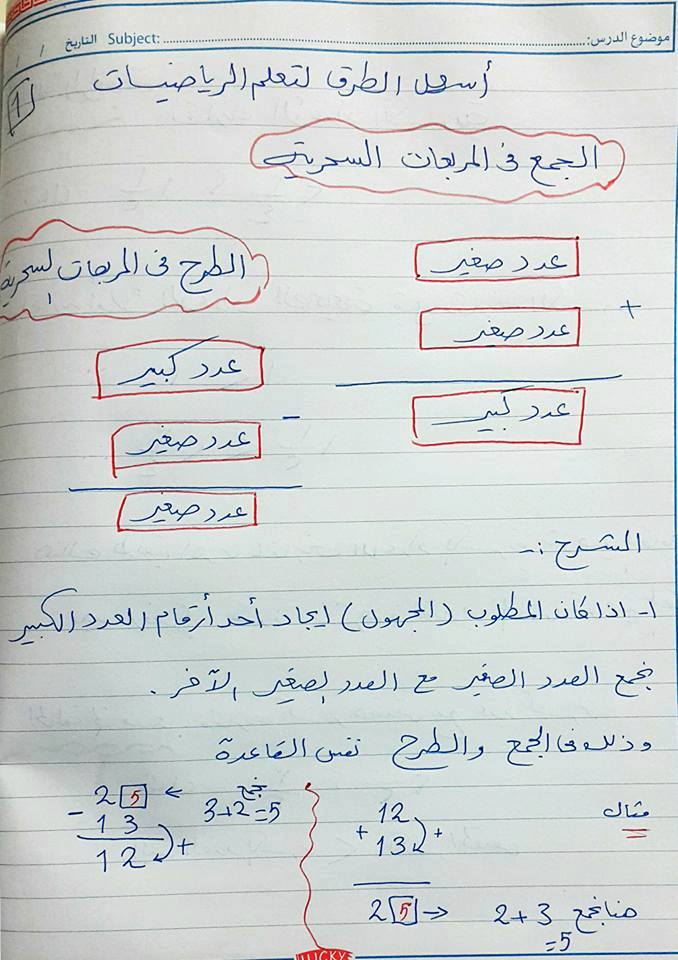 موضوع الدرس: Subject: التاريخ / /
أسهل الطرق لتعلم الرياضيات
1
الجمع في المربعات السحرية
عدد صغير
+
عدد صغير
عدد كبير
الطرح في المربعات السحرية
عدد كبير
-
عدد صغير
عدد صغير
الشرح :-
١- اذا كان المطلوب (المجهول) ايجاد أحد أرقام العدد الكبير
نجمع العدد الصغير مع العدد الصغير الآخر .
وذلك في الجمع والطرح نفس القاعدة
مثال
12
+ 13 +
2 5 → هنا نجمع 2+3
=5
2 5 ← نجمع
3+2=5
- 13
12 +
LUCKY